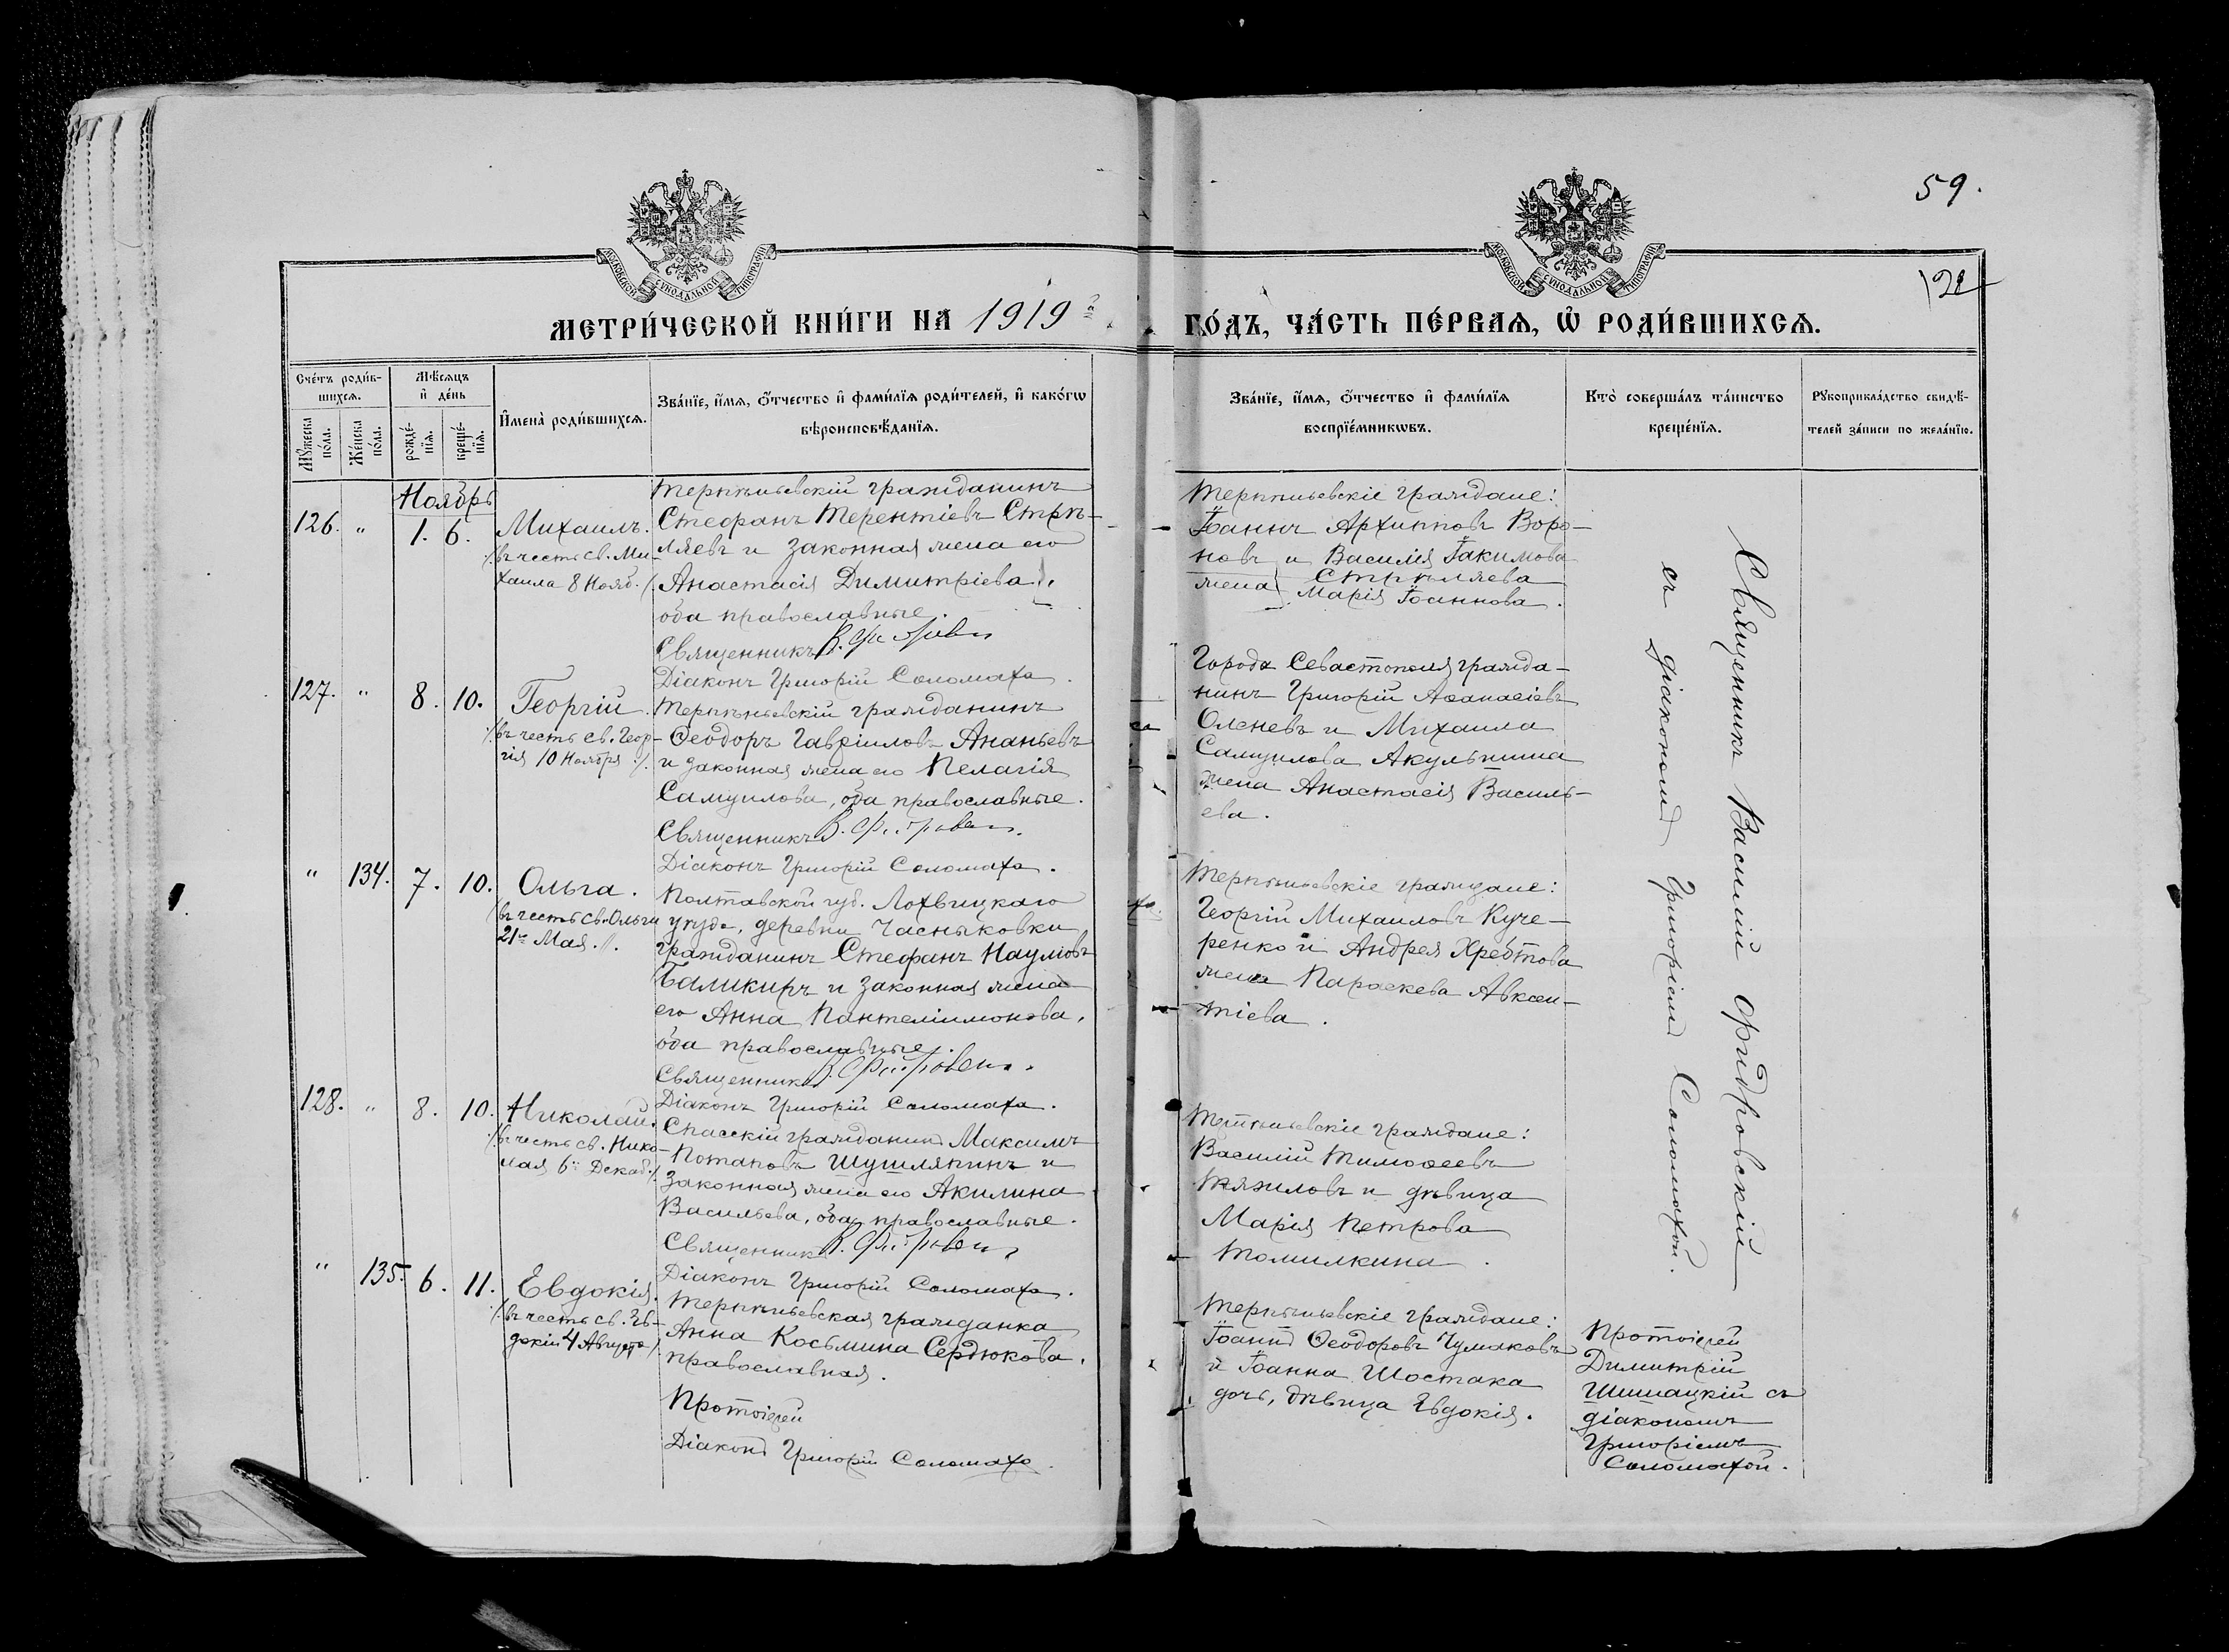 59.
121
МОСКОВСКОЙ СѴНОДАЛЬНОЙ ТИПОГРАФІИ
МОСКОВСКОЙ СѴНОДАЛЬНОЙ ТИПОГРАФІИ
МЕТРИ́ЧЕСКОЙ КНИ́ГИ НА 1919 г.
ГО́ДЪ, ЧА́СТЬ ПЕ́РВАѦ, Ѡ҆ РОДИ́ВШИХСѦ.
Сче́тъ роди́в-
шихсѧ.
Мꙋжеска по́ла.
Же́нска по́ла.
Мѣ́сѧцъ
и҆ де́нь
рожде́-
нїѧ.
креще́-
нїѧ.
И҆мена̀ роди́вшихсѧ.
Зва́нїе, и҆́мѧ, ѻ҆́тчество и҆ фами́лїѧ роди́телей, и҆ како́гѡ
вѣроисповѣ́данїѧ.
Зва́нїе, и҆́мѧ, ѻ҆́тчество и҆ фами́лїѧ
воспрїе́мникѡвъ.
Кто̀ соверша́лъ та́инство
креще́нїѧ.
Рꙋкоприкла́дство свидѣ́-
телей за́писи по жела́нїю.
Ноябрь
126. " 1. 6.
Михаилъ.
/въ честь св. Ми-
хаила 8 Нояб./.
Терпѣньевскій гражданинъ
Стефанъ Терентіевъ Стрѣ-
ляевъ и законная жена его
Анастасія Димитріева,
оба православные.
Священникъ В.
Діаконъ Григорій Соломаха.
Терпѣньевскіе граждане:
Іоаннъ Архиповъ Воро-
новъ и Василія Іакимова
Стрѣляева
жена Марія Іоаннова.
127. " 8. 10.
Георгій
/въ честь св. Геор-
гія 10 Ноября./.
Терпѣньевскій гражданинъ
Ѳеодоръ Гавріиловъ Ананьевъ
и законная жена его Пелагія
Самуилова, оба православные.
Священникъ В.
Діаконъ Григорій Соломаха.
Города Севастополя гражда-
нинъ Григорій Аѳанасіевъ
Оленевъ и Михаила
Самуилова Акульшина
жена Анастасія Василь-
ева.
" 134. 7. 10.
Ольга.
/въ честь св. Ольги
21го Мая./.
Полтавской губ. Лохвицкаго
уѣзда, деревни Часныковки
гражданинъ Стефанъ Наумовъ
и законная жена
его Анна Пантелиимонова,
оба православные.
Священникъ В.
Діаконъ Григорій Соломаха.
Терпѣньевскіе граждане:
Георгій Михаиловъ Куче-
ренко и Андрея Хребтова
жена Параскева Авксен-
тіева.
128. " 8. 10.
Николай.
/въ честь св. Нико-
лая 6го Декаб./.
Спасскій гражданинъ Максимъ
Потаповъ Шушляпинъ и
законная жена его Акилина
Васильева, оба православные.
Священникъ В.
Діаконъ Григорій Соломаха.
Терпѣньевскіе граждане:
Василій Тимоѳеевъ
Тяжиловъ и дѣвица
Марія Петрова
Томилкина.
" 135. 6. 11.
Евдокія.
/въ честь св. Ев-
докіи 4 Августа/.
Терпѣньевская гражданка
Анна Косьмина Сердюкова,
православная.
Протоіерей
Діаконъ Григорій Соломаха.
Терпѣньевскіе граждане:
Іоаннъ Ѳеодоровъ Чумаковъ
и Іоанна Шостака
дочь, дѣвица Евдокія.
Священникъ Василій Фидровскій
съ діакономъ Григоріемъ Соломахой.
Протоіерей
Димитрій
Шишацкій съ
діакономъ
Григоріемъ
Соломахой.